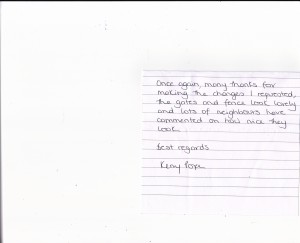 Once again, many thanks for
making the changes I requested,
the gates and fence look lovely
and lots of neighbours have
commented on how nice they
look.
best regards
Kerry Pope